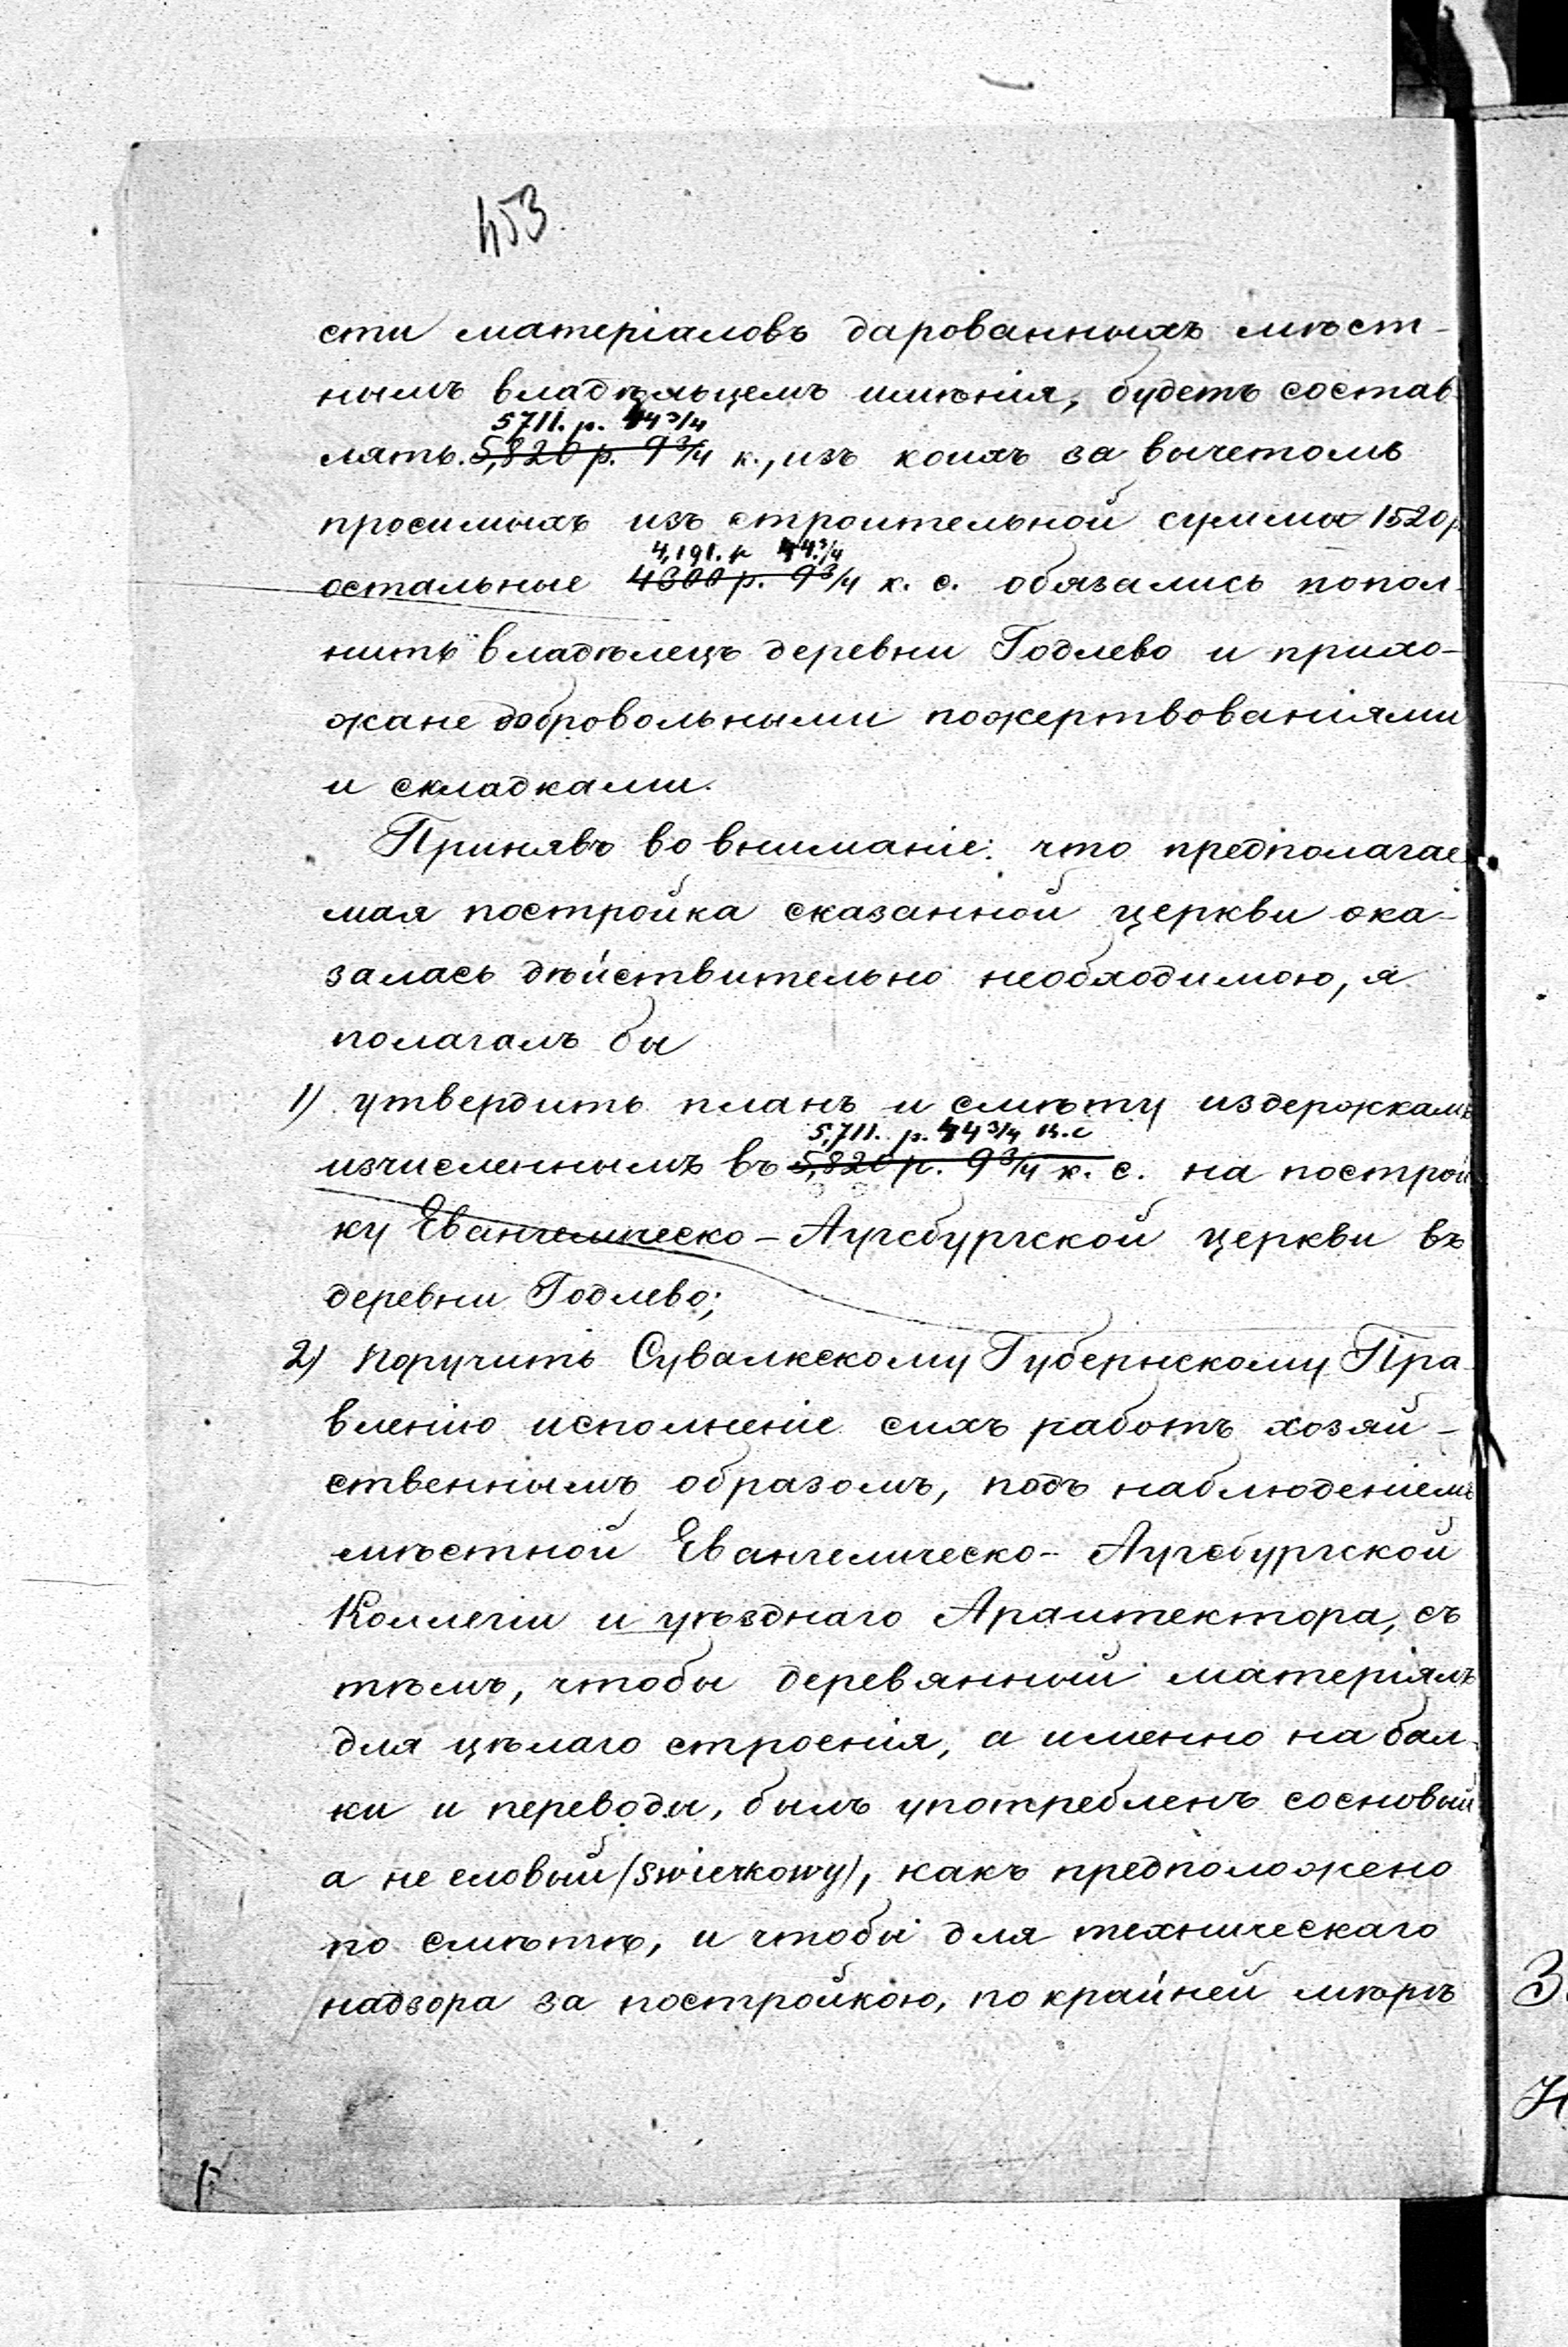 453.
сти матеріаловъ дарованныхъ мѣст-
нымъ владѣльцемъ имѣнія, будетъ состав-
5711. р. 44 3/4
лять 5,820 р. 9 3/4 к., изъ коихъ за вычетомъ
просимыхъ изъ строительной суммы 1520 р
4,191. р 44 3/4
остальные 4300 р. 9 3/4 к. с. обязались попол-
нить владѣлецъ деревни Годлево и прихо-
жане добровольными пожертвованіями
и складками.
Принявъ во вниманіе: что предполагае
мая постройка сказанной церкви ока-
залась дѣйствительно необходимою, я
полагалъ бы
1) утвердить планъ и смѣту издержкамъ
5,711. р. 44 3/4 к. с
изчисленнымъ въ 5,820 р. 9 3/4 к. с. на построй
ку Евангелическо-Аугсбургской церкви въ
деревни Годлево;
2) Поручить Сувалкскому Губернскому Пра-
вленію исполненіе сихъ работъ хозяй-
ственнымъ образомъ, подъ наблюденіемъ
мѣстной Евангелическо-Аугсбургской
Коллегіи и уѣзднаго Архитектора, съ
тѣмъ, чтобы деревянный матеріялъ
для цѣлаго строенія, а именно на бал-
ки и переводы, былъ употребленъ сосновый
а не еловый (swierkowy), какъ предположено
по смѣтѣ, и чтобы для техническаго
надзора за постройкою, по крайней мѣрѣ